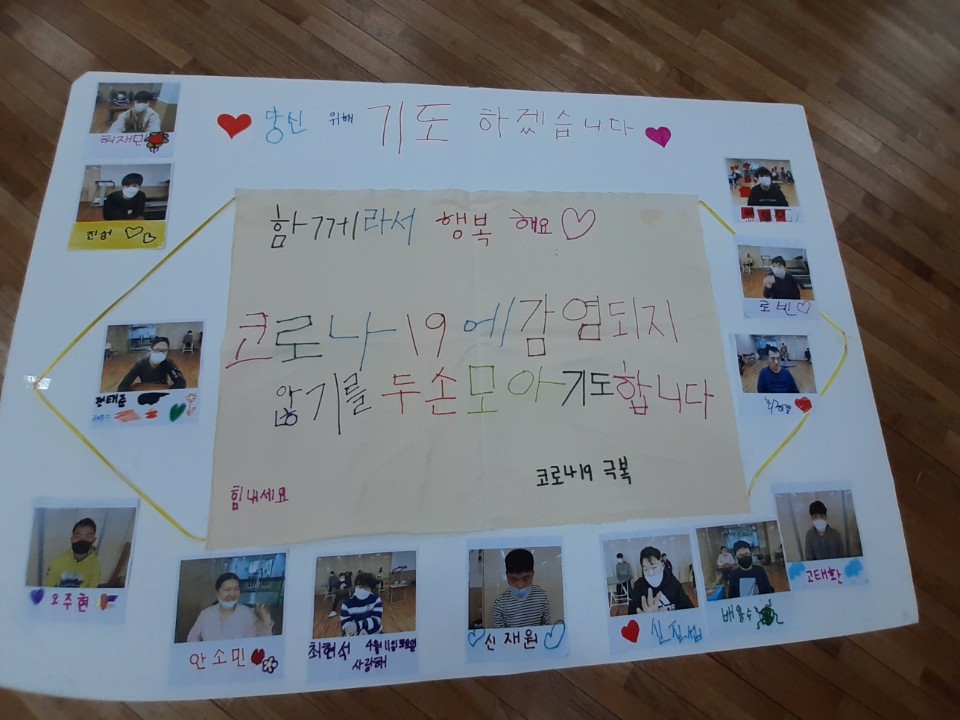 당신 위해 기도 하겠습니다
함께라서 행복 해요
코로나19에 감염되지
않기를 두손모아 기도합니다
코로나19 극복
힘내세요
허재민
진범
로빈
오주현
안소민
최현석
사랑해
신재원
배용수
고태환